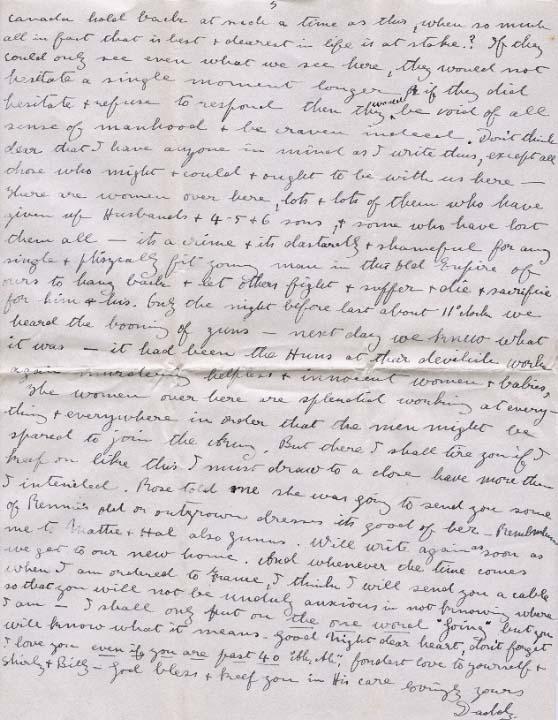 5
Canada hold back at such a time as this, when so much
all in fact that is best & dearest in life is at stake? If they
could only see even what we see here, they would not
hesitate a single moment longer & if they did
hesitate & refuse to respond then they would be void of all
sense of manhood & be craven indeed. Don't think
dear that I have anyone in mind as I write thus, except all
those who might & could & ought to be with us here —
There are women over here, lots & lots of them who have
given up Husbands & 4-5 & 6 sons, & some who have lost
them all — its a crime & its dastardly & shameful for any
single & physically fit young man in this Old Empire of
ours to hang back & let others fight & suffer & die & sacrifice
for him & his. Only the night before last about 11 o'clock we
heard the booming of guns — next day we knew what
it was — it had been the Huns at their devilish work
again murdering helpless & innocent women & babies.
The women over here are splendid working at every
thing & everywhere in order that the men might be
spared to join the Army. But there I shall tire you if I
keep on like this. I must draw to a close have more than
I intended. Rose told me she was going to send you some
of Rennie's old or outgrown dresses its good of her — Remember
me to Mattie & Hal also Will write again as soon as
we get to our new home. And whenever the time comes
when I am ordered to France, I think I will send you a cable
so that you will not be unduly anxious in not knowing where
I am — I shall only put on the one word "Going" but you
will know what it means. Good Night dear heart, don't forget
I love you even if you are past 40 fondest love to yourself &
Shirly & Billy — God bless & keep you in His care lovingly yours
Daddy